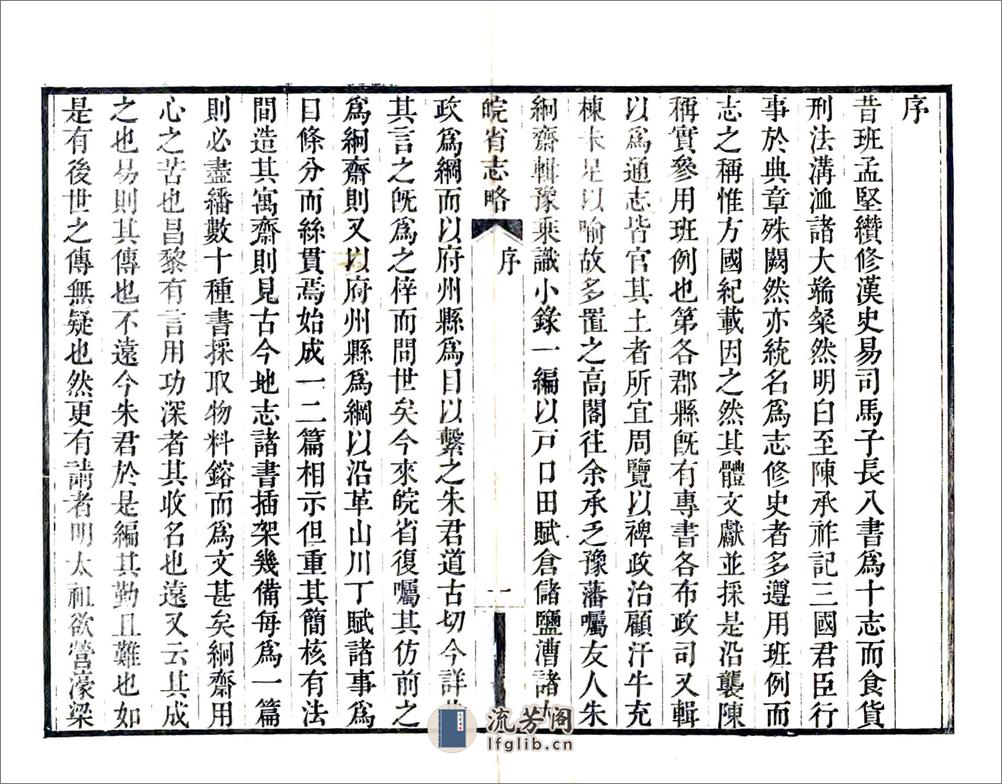 序
昔班孟堅纘修漢史易司馬子長八書爲十志而食貨
刑法溝洫諸大端粲然明白至陳承祚記三國君臣行
事於典章殊闕然亦統名爲志修史者多遵用班例而
志之稱惟方國紀載因之然其體文獻並採是沿襲陳
稱實參用班例也第各郡縣旣有專書各布政司又輯
以爲通志皆官其土者所宜周覽以裨政治顧汗牛充
棟未足以喻故多置之高閣往余承乏豫藩囑友人朱
絅齋輯豫乘識小錄一編以戸口田賦倉儲鹽漕諸大
皖省志略
序
一
政爲綱而以府州縣爲目以繫之朱君道古切今詳
其言之旣爲之梓而問世矣今來皖省復囑其仿前之
爲絅齋則又以府州縣爲綱以沿革山川丁賦諸事爲
目條分而絲貫焉始成一二篇相示但重其簡核有法
間造其寓齋則見古今地志諸書插架幾備每爲一篇
則必盡繙數十種書採取物料鎔而爲文甚矣絅齋用
心之苦也昌黎有言用功深者其收名也遠又云其成
之也易則其傳也不遠今朱君於是編其勤且難也如
是有後世之傳無疑也然更有請者明太祖欲營濠梁
流芳阁
lfglib.cn